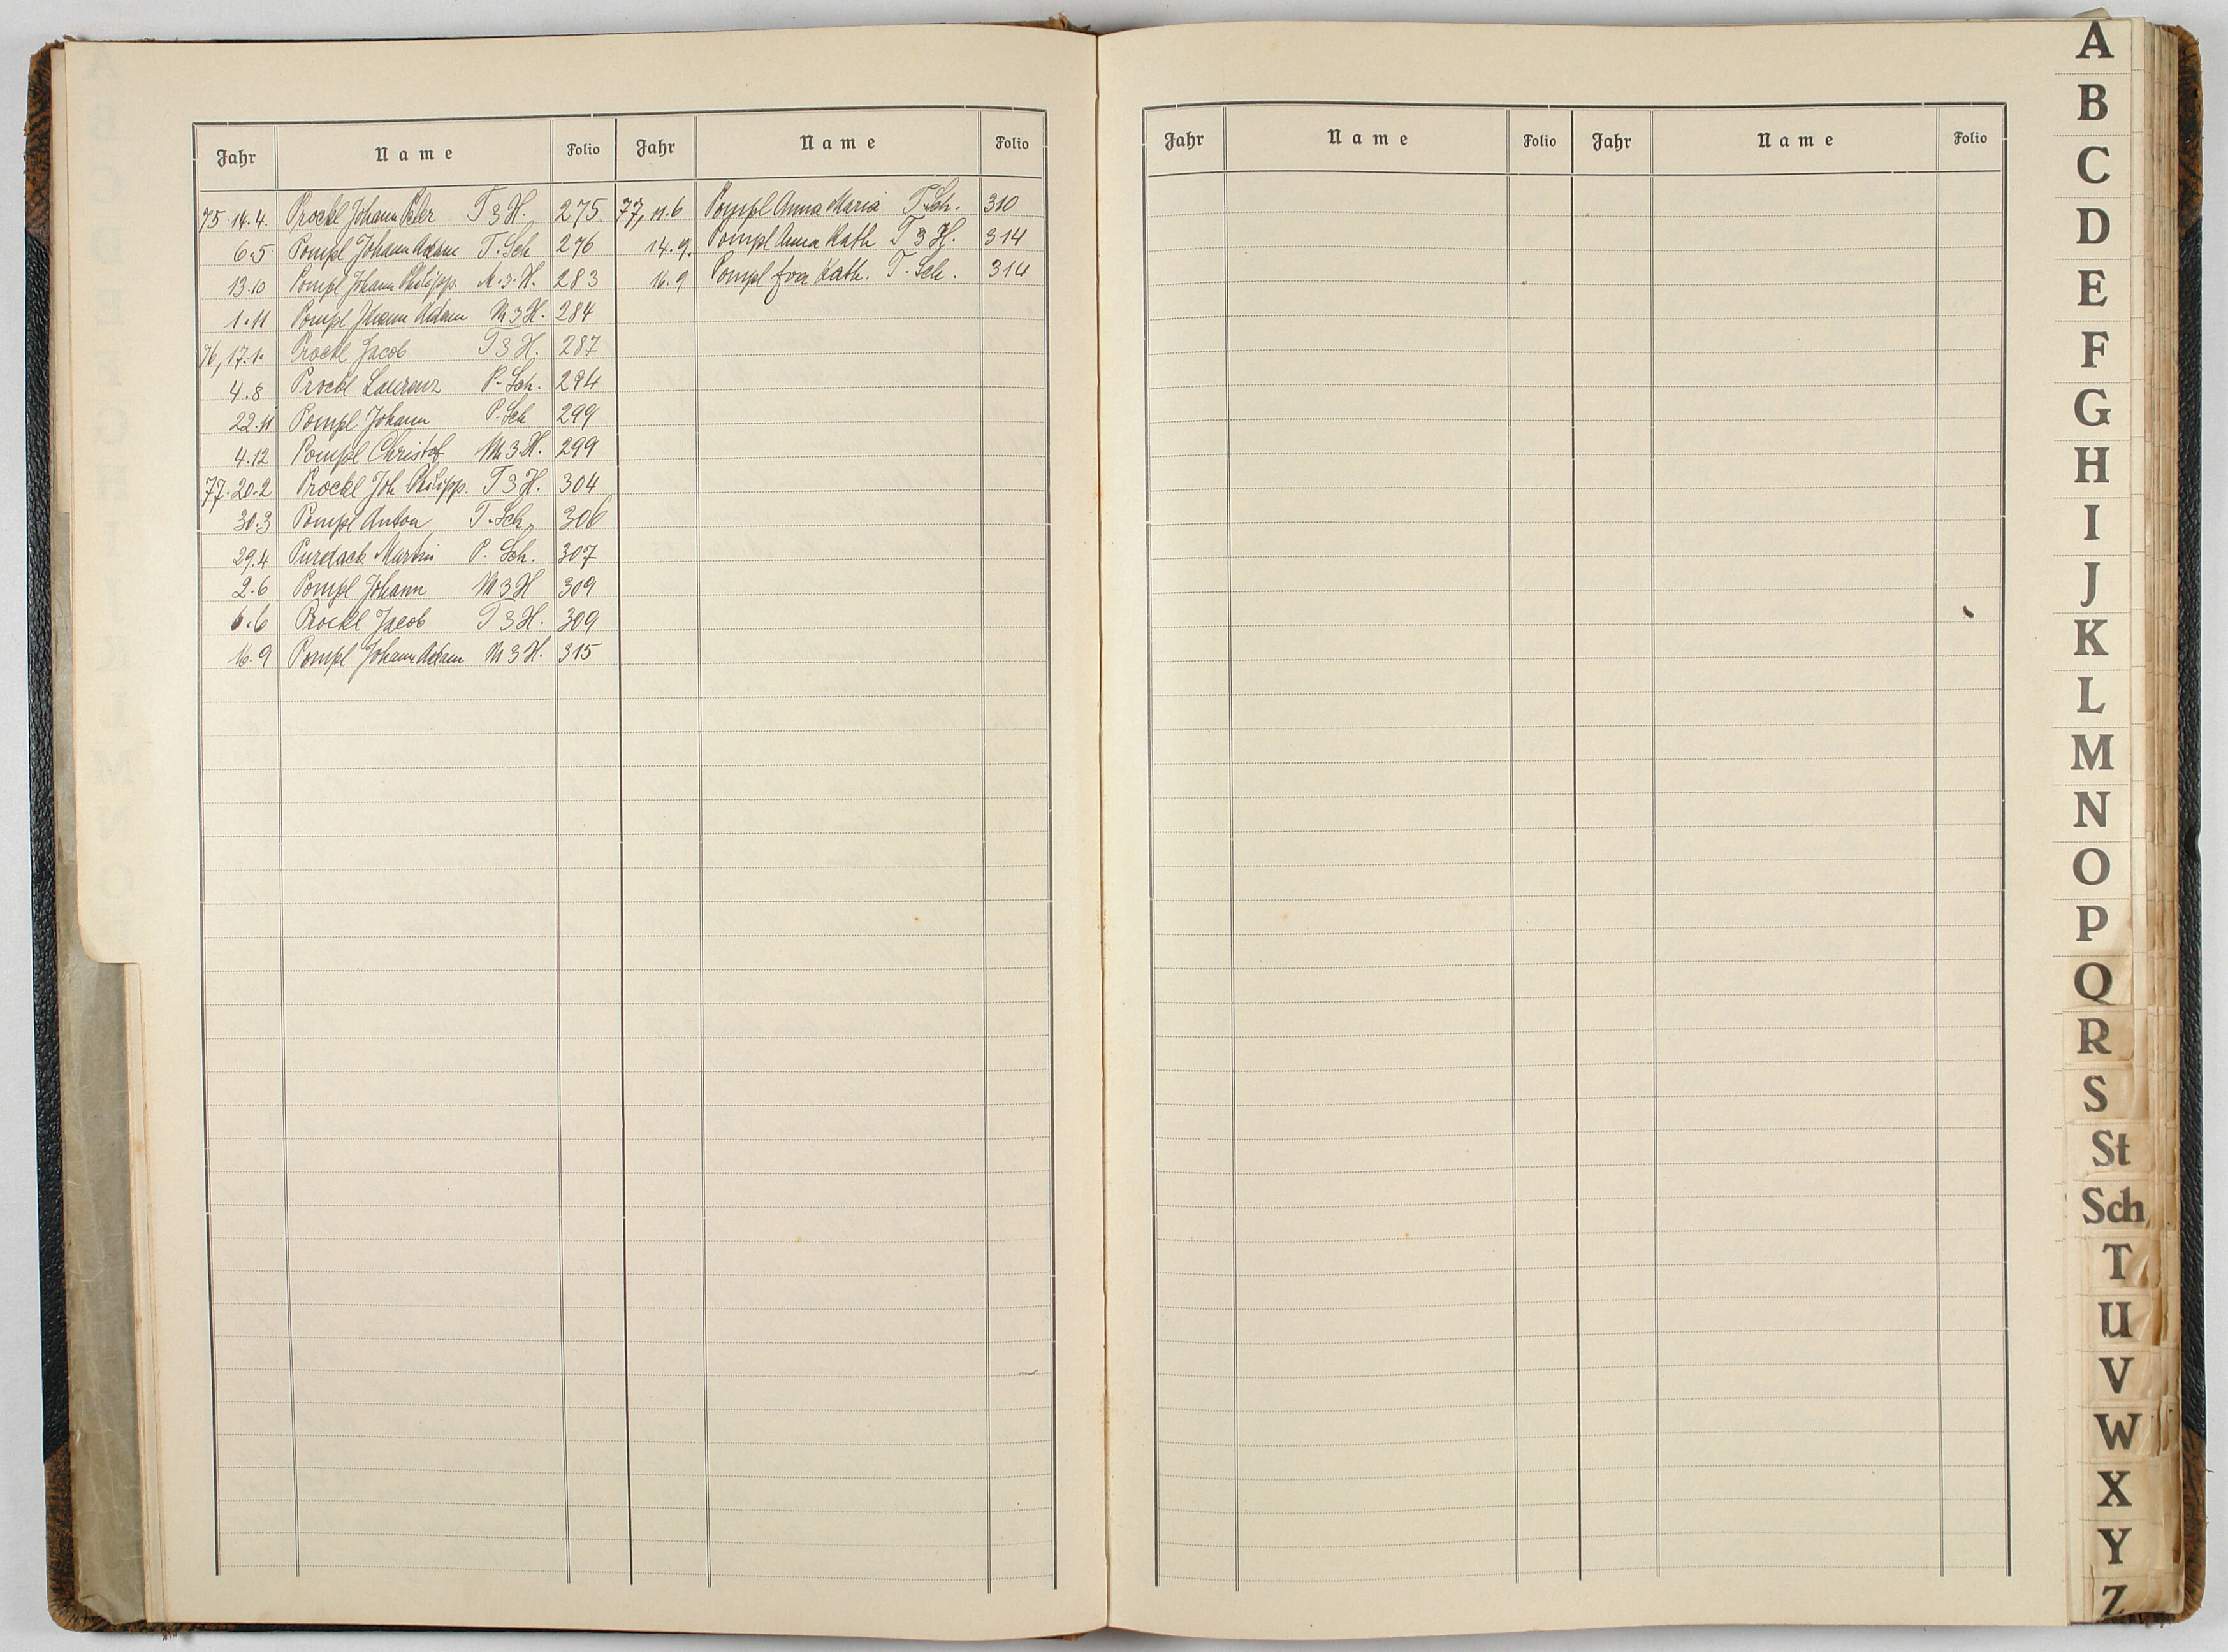 Jahr Name Folio Jahr Name Folio
75. 14. 4. Prockl Johann Peter T 3 H. 275.
6. 5 Pompl Johann Adam T. Sch 276
13. 10 Pompl Johann Philipp. M. 3. H. 283
1. 11 Pompl Johann Adam M 3 H. 284
76, 17. 1. Prockl Jacob T 3 H. 287
4. 8 Prockl Laurenz P. Sch. 294
22. 11 Pompl Johann P. Sch 299
4. 12 Pompl Christof M 3. H. 299
77. 20. 2 Prockl Joh Philipp. T 3 H. 304
30. 3 Pompl Anton T. Sch, 306
29. 4 Martin P. Sch. 307
2. 6 Pompl Johann M 3 H 309
6. 6 Prockl Jacob T 3 H. 309
16. 9 Pompl Johann Adam M 3 H. 315
77, 11. 6 Pompl Anna Maria T. Sch. 310
14. 9. Pompl Anna Kath T 3 H. 314
16. 9 Pompl Eva Kath. T. Sch. 314
Jahr Name Folio Jahr Name Folio
A
B
C
D
E
F
G
H
I
J
K
L
M
N
O
P
Q
R
S
St
Sch
T
U
V
W
X
Y
Z